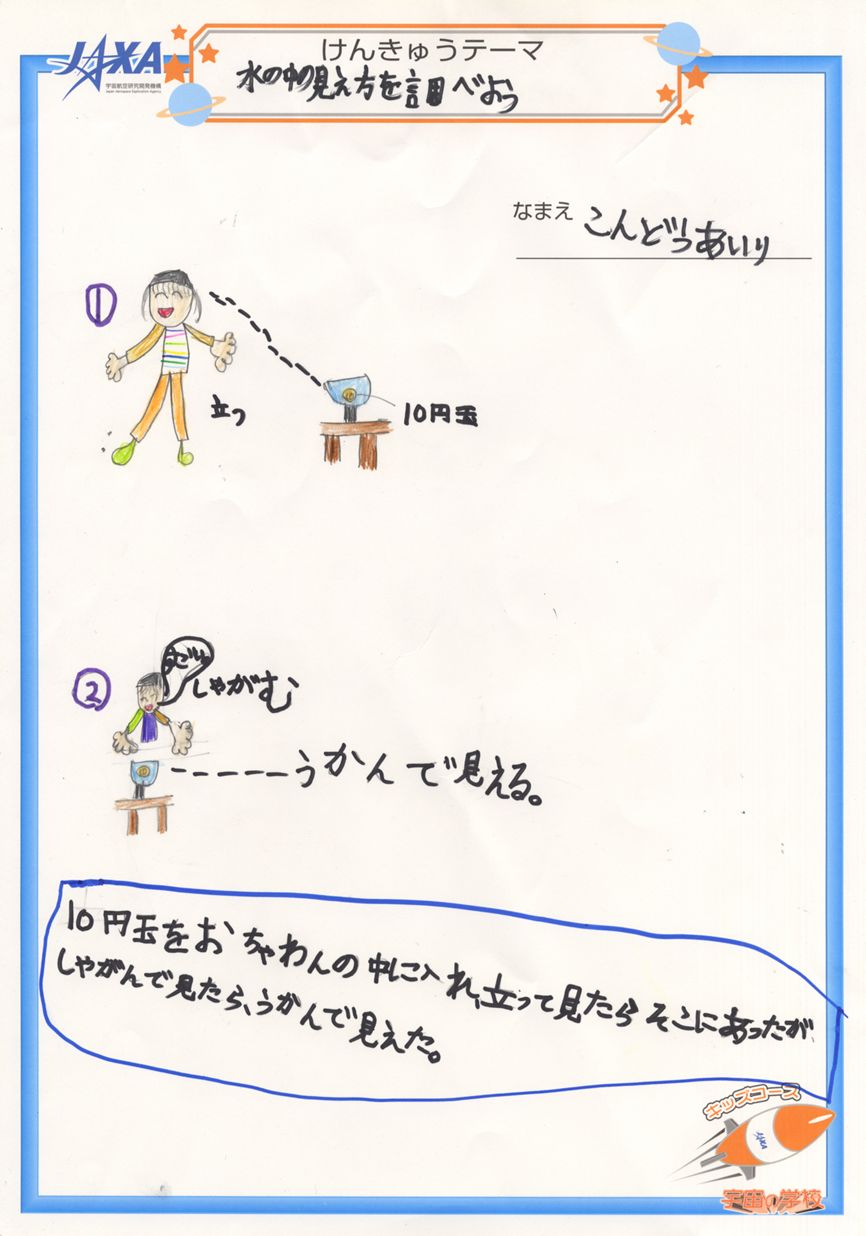 JAXA
宇宙航空研究開発機構
Japan Aerospace Exploration Agency
けんきゅうテーマ
水の中の見え方を調べよう
なまえ こんどうあいり
①
立つ
10円玉
②
しゃがむ
-----うかんで見える。
10円玉をおちゃわんの中に入れ、立って見たらそこにあったが、
しゃがんで見たら、うかんで見えた。
キッズコース
JAXA
宇宙の学校